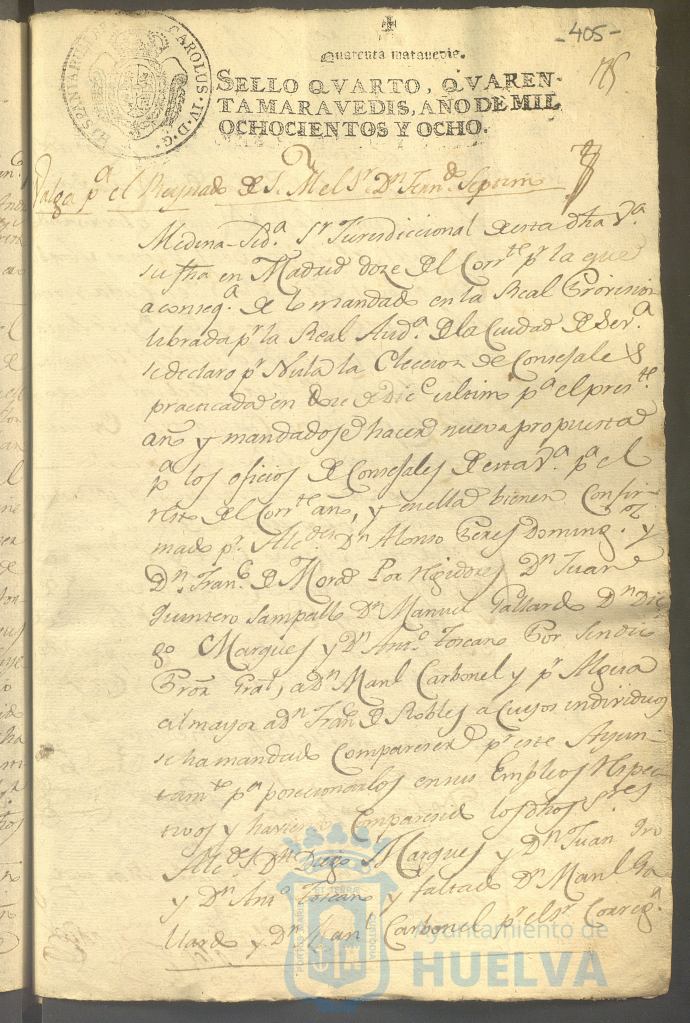 -405-
Quarenta maravedis.
HISPANIARUM CAROLUS·IV·D·G·
SELLO QVARTO, QVAREN-
TA MARAVEDIS, AÑO DE MIL
OCHOCIENTOS Y OCHO.
Valga pª el Reynado de S. M el Sr Dn Ferndo Septimo
Medina-Sidª Sr Jurisdiccional de esta dha Vª
su fha en Madrid doze del Corrte pr la que
a conseqª de lo mandado en la Real Provision
librada pr la Real Audª de la Ciudad de Sevª
se declaro pr Nula la Eleccion de Consejales
practicada en Doze de Dice ultimo pª el preste
año y mandadose hacer nueva propuesta
pª los oficios de Consejales de esta Vª pª el
resto del Corrte año, y en ella bienen Confir-
mado pr Alcdes Dn Alonso Peres Domingz y
Dn Franco de Mora Por Regidores Dn Juan
Quintero Sampallo Dn Manuel Gallardo Dn Die-
go Marques y Dn Anto Toscano Por Sindico
Pror Gral, a Dn Manl Carbonel y pr Algua
cil mayor a dn Franco de Robles a Cuyos individuos
se ha mandado Comparescer pr este Ayun-
tamto pª posecionarlos en sus Empleos Respec-
tivos y haviendo Comparecido los dhos Sres
Alcdes Dn Diego Marques y Dn Juan
y Dn Anto Toscano y faltado Dn Manl Ga
llardo y Dn Manl Carbonel pr el sr Corregr
Ayuntamiento de
HUELVA